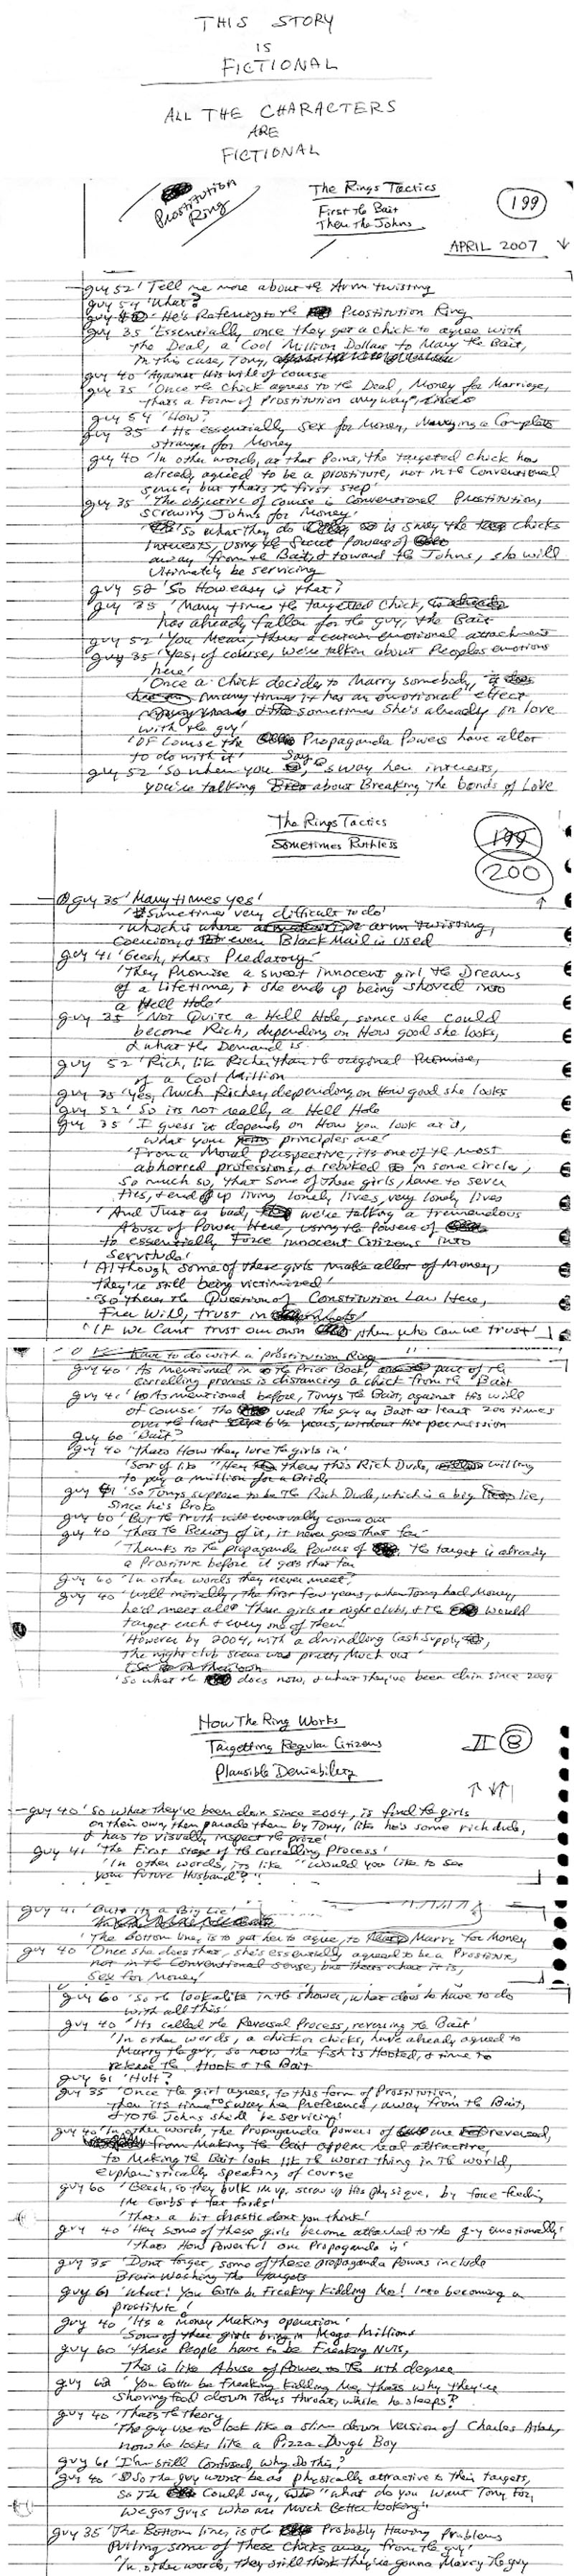 THIS STORY
IS
FICTIONAL
ALL THE CHARACTERS
ARE
FICTIONAL
Prostitution
Ring
The Rings Tactics
First the Bait
Then the Johns
199
APRIL 2007
guy 52 'Tell me more about the Arm twisting
guy 54 'What?
guy 40 'He's Referring to the Prostitution Ring
guy 35 'Essentially, once they get a chick to agree with
the Deal, a Cool Million Dollars to Marry the Bait,
in this case, Tony,
guy 40 'Against His will of course
guy 35 'Once the Chick agrees to the Deal, Money for Marriage,
thats a Form of Prostitution anyway'
guy 54 'How?'
guy 35 'Its essentially Sex for Money, Marrying a Complete
stranger for Money
guy 40 'In other words, at that Point, the targeted chick has
already agreed to be a prostitute, not in the Conventional
sense, but thats the first step'
guy 35 'The objective of course is Conventional Prostitution,
screwing Johns for Money'
'So what they do is sway the chicks
Interests, using the Secret Powers of
away from the Bait, & toward the Johns, she will
Ultimately be servicing
guy 52 'So How easy is that?
guy 35 'Many times the targetted Chick,
has already fallen for the guy, the Bait
guy 52 'You Mean, theres a certain emotional attachment
guy 35 'Yes, of course, we're talken about Peoples emotions
here'
'Once a Chick decides to Marry somebody,
many times it has an emotional effect
& sometimes She's already in love
with the guy'
'Of Course the Propaganda Powers have allot
to do with it'
guy 52 'So when you Say, sway her interests,
you're talking about Breaking the bonds of Love
The Rings Tactics
Sometimes Ruthless
199
200
guy 35 'Many times yes'
'Sometimes very difficult to do'
'Which is where arm twisting,
Coercion, & even Black Mail is used
guy 41 'Geesh, thats Predatory'
'They Promise a sweet innocent girl, the Dreams
of a Lifetime, & she ends up being shoved into
a Hell Hole'
guy 35 'Not Quite a Hell Hole, since she could
become Rich, depending on How good she looks,
& what the Demand is'
guy 52 'Rich, like Richer than the original Promise,
of a Cool Million
guy 35 'Yes, Much Richer, depending on How good she looks
guy 52 'So its not really a Hell Hole
guy 35 'I guess it depends on How you look at it,
what your principles are'
'From a Moral perspective, its one of the most
abhorred professions, & rebuked in some circles,
so much so, that some of these girls, have to sever
ties, & end up living lonely lives, very lonely lives
'And Just as bad, we're talking a tremendous
Abuse of Power Here, using the Powers of
to essentially Force innocent Citizens into
servitude'
'Although some of these girls make allot of Money,
they're still being victimized'
'So theres the Question of Constitution Law Here,
Free Will, trust in
'If we Cant trust our own then who can we trust'
have to do with a prostitution Ring
guy 40 'As mentioned in the Prior Book, part of the
corralling process is distancing a chick from the Bait
guy 41 'As mentioned before, Tonys the Bait, against His will
of course' The used The guy as Bait at least 200 times
over the last 6½ years, without His permission
guy 60 'Bait?
guy 40 'Thats How they lore the girls in'
'Sort of like "Hey theres this Rich Dude, willing
to pay a million for a Bride
guy 41 'So Tonys suppose to be the Rich Dude, which is a big lie,
since he's Broke
guy 60 'But the truth will eventually come out'
guy 40 'Thats the Beauty of it, it never goes that far'
'Thanks to the propaganda Powers of the target is already
a Prostitute before it gets that far
guy 60 'In other words they never meet?
guy 40 'Well initially, the first few years, when Tony had Money,
he'd meet all These girls at night clubs, & the would
target each & every one of them'
'However by 2004, with a dwindling Cash Supply,
The night club scene was pretty Much out'
'So what the does now, & what they've been doin since 2004
How The Ring Works
Targetting Regular Citizens
Plausible Deniability
II 8
guy 40 'So what they've been doin since 2004, is find the girls
on their own, then parade them by Tony, like he's some rich dude,
& has to visually inspect the prize'
guy 41 'The First stage of the Corralling Process'
'In other words, its like "would you like to see
your future Husband?"'
guy 41 'But its a Big Lie'
'The bottom line, is to get her to agree, to Marry for Money
guy 40 'Once she does that, she's essentially agreed to be a Prostitute,
not in the Conventional sense, but thats what it is,
Sex for Money'
guy 60 'So the lookalike in the shower, what does he have to do
with all this'
guy 40 'Its called the Reversal Process, reversing the Bait'
'In other words, a chick or chicks, have already agreed to
Marry the guy, so now the fish is Hooked, & time to
release the Hook & the Bait
guy 61 'Huh?
guy 35 'Once the girl agrees, to this form of Prostitution,
then its time to sway her Preference, away from the Bait,
& to the Johns she'll be servicing'
guy 40 'In other words, the Propaganda powers of are reversed,
from Making the Bait appear real attractive,
to Making the Bait look like the worst thing in the world,
euphamistically speaking of course
guy 60 'Geesh, so they bulk him up, screw up His physique, by force feeding
him Carbs & fat foods'
'Thats a bit drastic dont you think'
guy 40 'Hey some of these girls become attached to the guy emotionally'
'Thats How Powerful our Propaganda is'
guy 35 'Dont forget, some of these propaganda Powers include
Brain Washing the targets
guy 61 'What! You Gotta be Freaking Kidding Me! Into becoming a
prostitute'
guy 40 'Its a Money Making operation'
'Some of these girls bring in Mega Millions
guy 60 'These People have to be Freaking Nuts,
This is like Abuse of Power to the nth degree
guy 62 'You Gotta be Freaking Kidding Me, thats why they're
shoving food down Tonys throat, while he sleeps?
guy 40 'Thats the theory'
'The guy use to look like a slim down version of Charles Atlas,
now he looks like a Pizza Dough Boy
guy 61 'I'm Still Confused, Why Do This?
guy 40 'So the guy wont be as physically attractive to their targets,
so The Could say, "what do you want Tony for,
we got guys who are Much Better looking"
guy 35 'The Bottom line, is the Probably Having problems
Pulling some of These Chicks away from the guy'
'In other words, they still think they're gonna Marry the guy